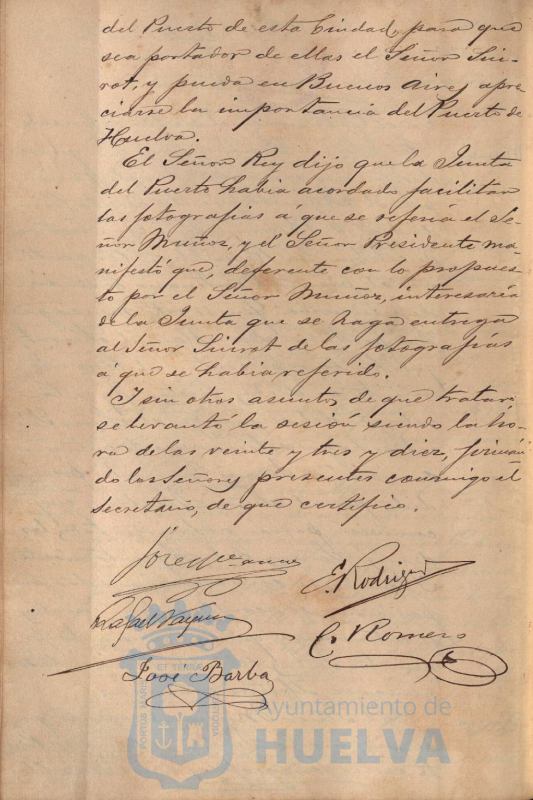 del Puerto de esta Ciudad, para que
sea portador de ellas el Señor Siu-
rot, y pueda en Buenos Aires apre-
ciarse la importancia del Puerto de
Huelva.
El Señor Rey dijo que la Junta
del Puerto habia acordado facilitar
las fotografias á que se referia el Se-
ñor Muñoz, y el Señor Presidente ma-
nifestó que, deferente con lo propues-
to por el Señor Muñoz, interesaria
de la Junta que se haga entrega
al Señor Siurot de las fotografias
á que se habia referido.
I sin otros asuntos de que tratar
se levantó la sesión siendo la ho-
ra de las veinte y tres y diez, firman-
do los Señores presentes conmigo el
Secretario, de que certifico.
E. Rodriguez
Rafael
C. Romero
José Barba
PORTUS MARIS ET TERRAE CUSTODIA
Ayuntamiento de
HUELVA